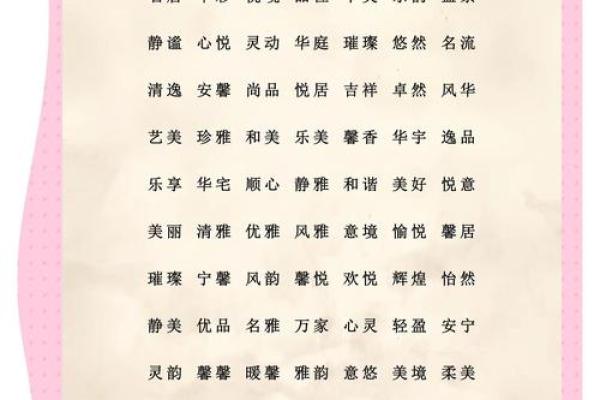 静谧 心悦 灵动 华庭 璀璨 悠然 名流
清逸 安馨 尚品 悦居 吉祥 卓然 风华
艺美 珍雅 和美 乐美 馨香 华宇 逸品
乐享 华宅 顺心 静雅 和谐 美好 悦意
美丽 清雅 优雅 风雅 意境 愉悦 馨居
璀璨 宁馨 风韵 馨悦 欢悦 辉煌 怡然
静美 优品 名雅 万家 心灵 轻盈 安宁
灵韵 馨馨 暖馨 雅韵 意悠 美境 柔美